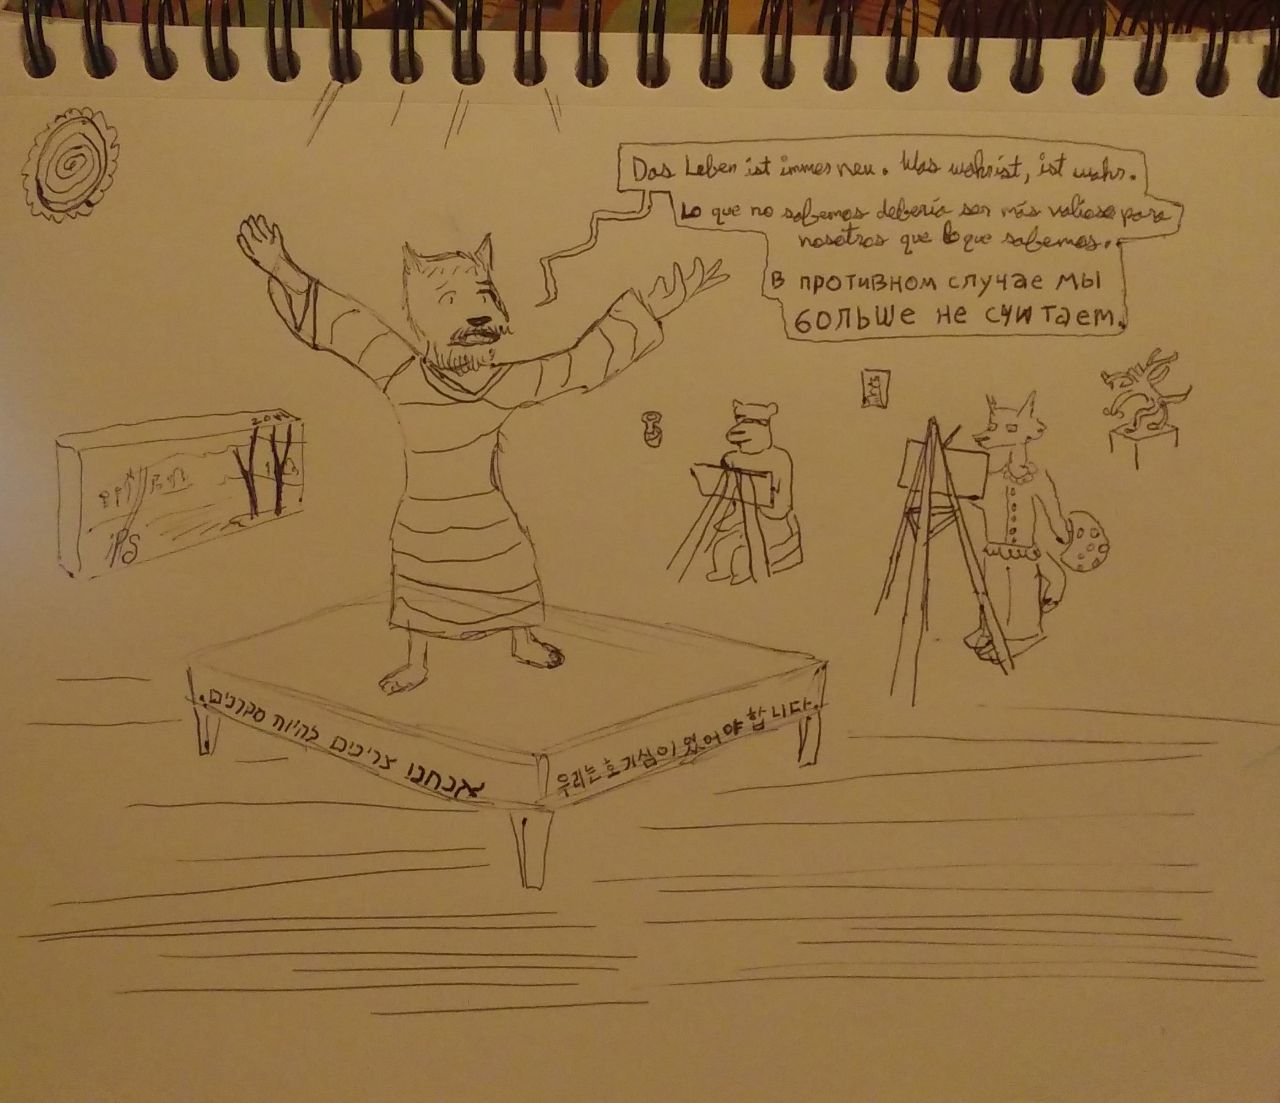 Das Leben ist immer neu. Was wahrist, ist wahr.
Lo que no sabemos debería ser más valioso para
nosotros que lo que sabemos.
В противном случае мы
больше не считаем.
iPS
אנחנו צריכים להיות סקרנים.
우리는 호기심이 있어야 합니다.